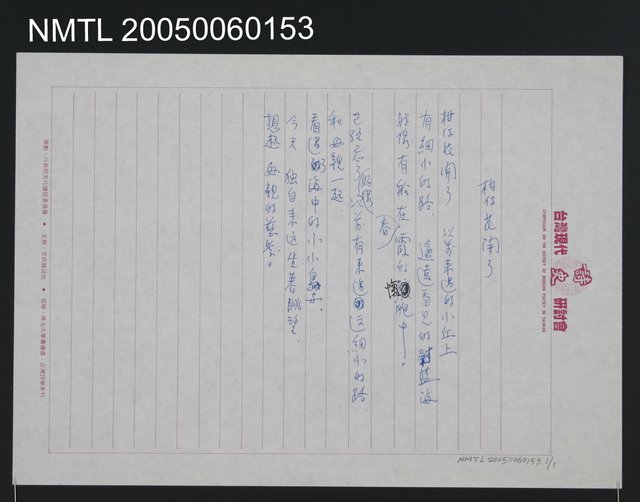 NMTL 20050060153
台灣現代詩史研討會
SYMPOSIUM ON THE HISTORY OF MODERN POETRY IN TAIWAN
柑仔花開了
柑仔花開了 以前來過的小丘上
有細小的路 遙遠看見的藍海
好像有船在霞的春
腿中！
已經忘了假裝 以前有來過的這細小的路
和母親一起
看過海中的小小島子
今天 獨自來這坐著眺望
想起母親的慈祥。
策劃：行政院文化建設委員會 ● 主辦：文訊雜誌社 ● 協辦：
台灣詩學季刊
NMTL 20050060153.1/1